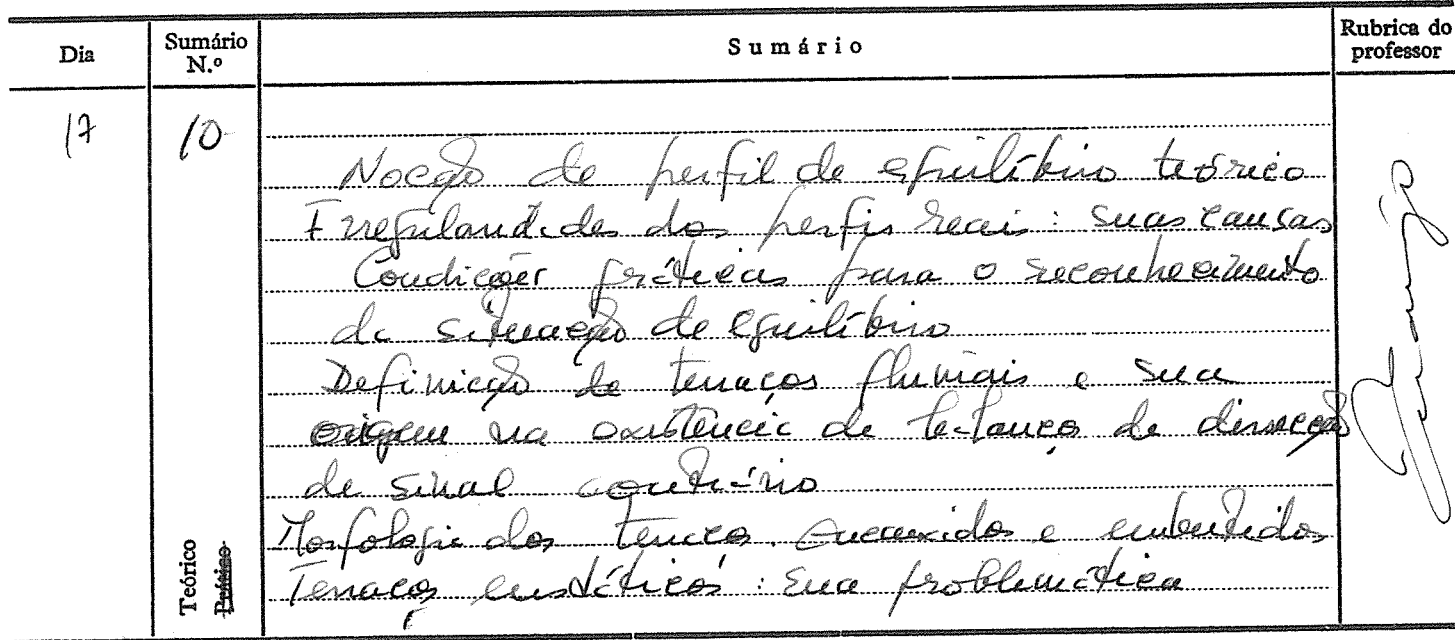 Dia
Sumário N.º
Sumário
Rubrica do professor
17
10
Noção de perfil de equilíbrio teórico
Irregularidades dos perfis reais : suas causas
Condições práticas para o reconhecimento
da situação de equilíbrio
Definição de terraços fluviais e sua
origem na existência de balanços de dissecção
de sinal contrário
Morfologia dos terraços. encaixados e embutidos
Terraços eustáticos : sua problemática
Teórico
Prático